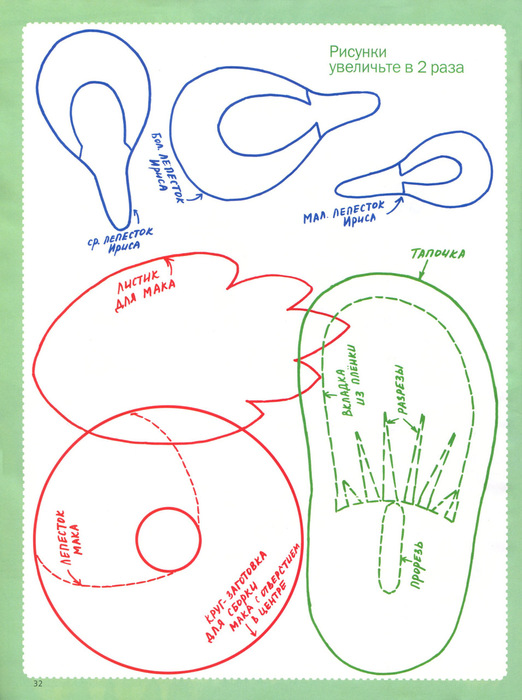 Рисунки
увеличьте в 2 раза
Бол. лепесток
Ириса
ср. лепесток
Ириса
мал. лепесток
Ириса
Тапочка
Листик
для мака
Вкладка
из плёнки
Разрезы
Прорезь
Лепесток
мака
Круг-заготовка
для сборки
мака с отверстием
в центре
32